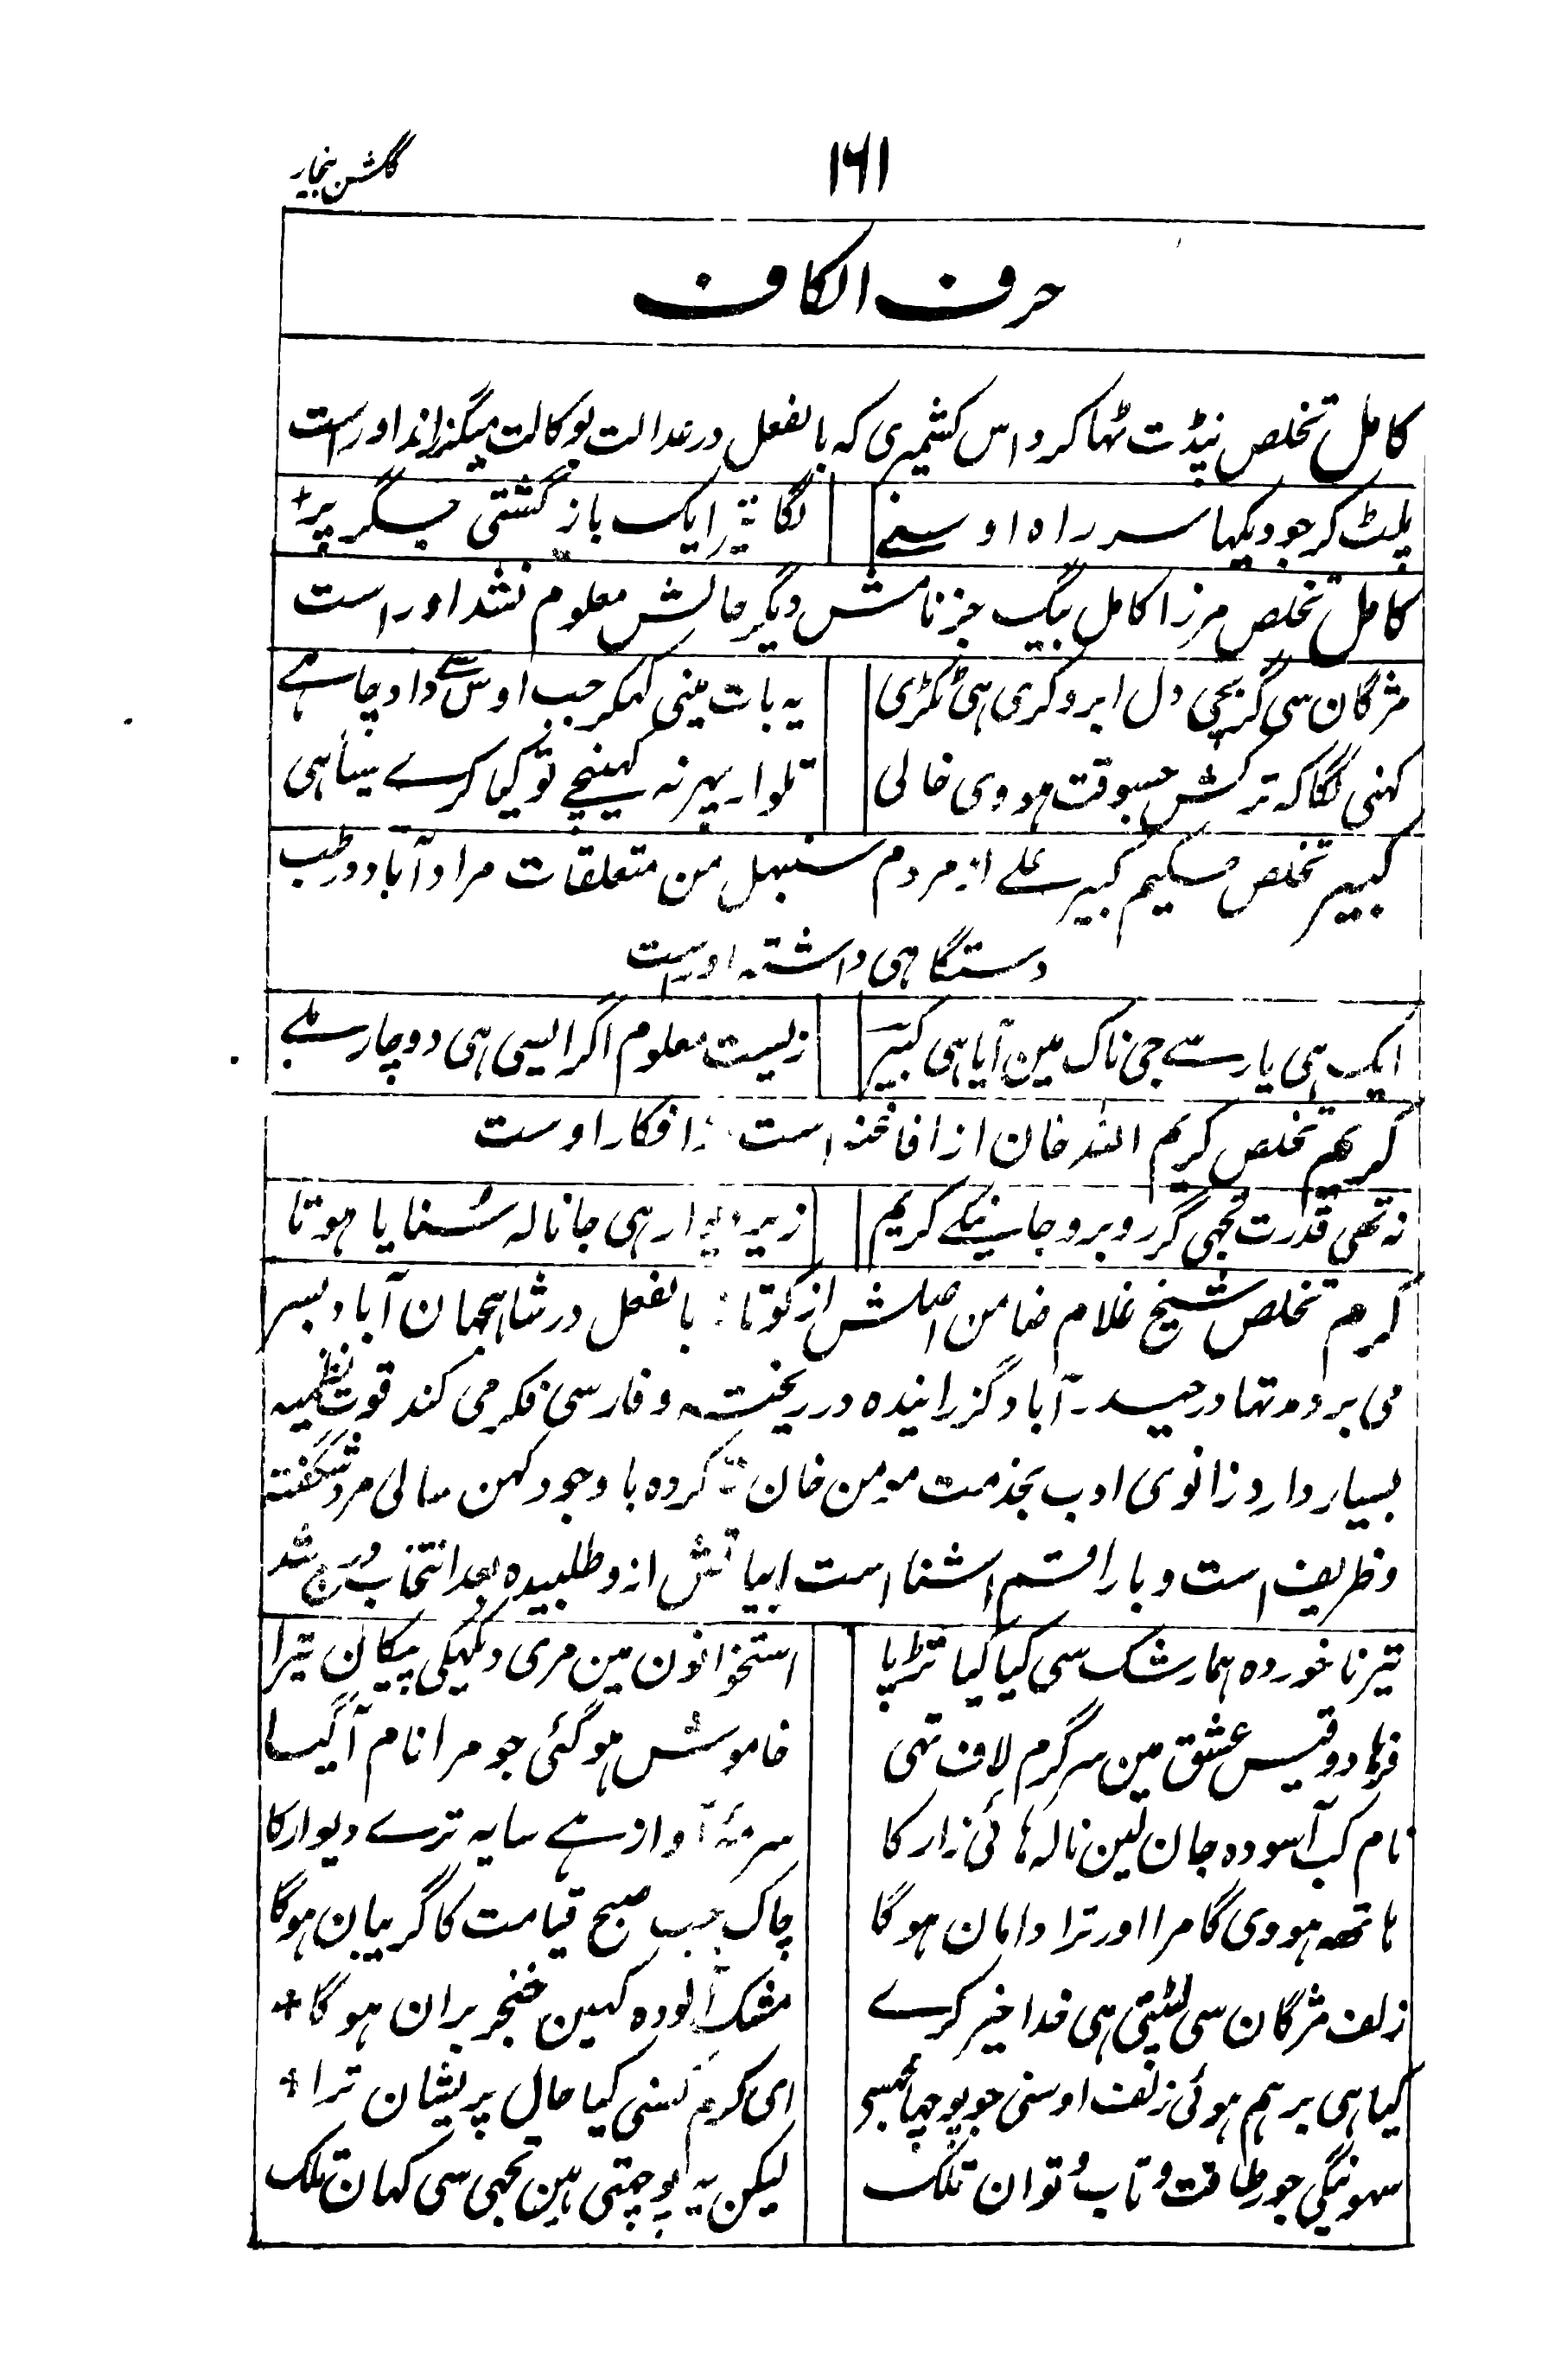 ۱۶۱
گلشن بیخار
حرف الکاف
کامل تخلص پنڈت ٹہاکر داس کشمیری کہ بالفعل در عدالت بوکالت میگذراند اوراست
پلٹ کر جو دیکہا سر راہ اوسنے لگا تیر ایک باز گشتی جگر پر
کامل تخلص مرزا کامل بیگ جز نامش دیگر حالش معلوم نشد اوراست
مژگان سی گر بچی دل ابرو کری ہی ٹکڑی یہ بات مینی کہکر جب اوس سے داد چاہے
کہنی لگا کہ ترکش جسوقت ہووی خالی تلوار پہر نہ کہینچے تو کیا کرے سپاہی
کبیر تخلص حکیم کبیر علے از مردم سنبہل من متعلقات مراد آباد در طب
دستگاہی داشتہ اوراست
ایک ہی یار سے جی ناک مین آیا ہی کبیر زیست معلوم اگر ایسی ہی دو چار ملے
کریم تخلص کریم اللہ خان از افاغنہ است از افکار اوست
نہ تھی قدرت تجہی گر روبرو جانیکے کریم زیر دیوار ہی جا نالہ سُنایا ہوتا
کرم تخلص شیخ غلام ضامن اصلش از کوتانہ بالفعل در شاہجہان آباد بسر
می برد مدتہا در حیدر آباد گزرانیدہ در ریختہ و فارسی فکر می کند قوت نظمیہ
بسیار دارد زانوی ادب بخدمت مومن خان تہ کردہ باوجود کہن سالی مرد شگفتہ
و ظریف است و با راقم اشنا است ابیاتش ازو طلبیدہ بعد انتخاب درج شد
تیر نا خوردہ ہما رشک سی کیا کیا تڑپا استخوانون مین مری دیکہکی پیکان تیرا
فرہاد و قیس عشق مین سرگرم لاف تہی خاموش ہو گئی جو مرا نام آگیا
نام کب آسودہ جان لین نالہ ہائی زار کا سرمۂ آواز ہے سایہ ترے دیوار کا
ہاتھہ ہووی گا مرا اور ترا دامان ہو گا چاک جب صبح قیامت کا گریبان ہوگا
زلف مژگان سی لپٹتی ہی خدا خیر کرے مشک آلودہ کہین خنجر بران ہو گا
کیا ہی برہم ہوئی زلف اوسنی جو پوچہا مجہسی ای کرم کسنی کیا حال پریشان ترا
سہونگی جور طاقت و تاب و توان تلک لیکن یہ پوچہتی ہین تجہی سی کہان تلک